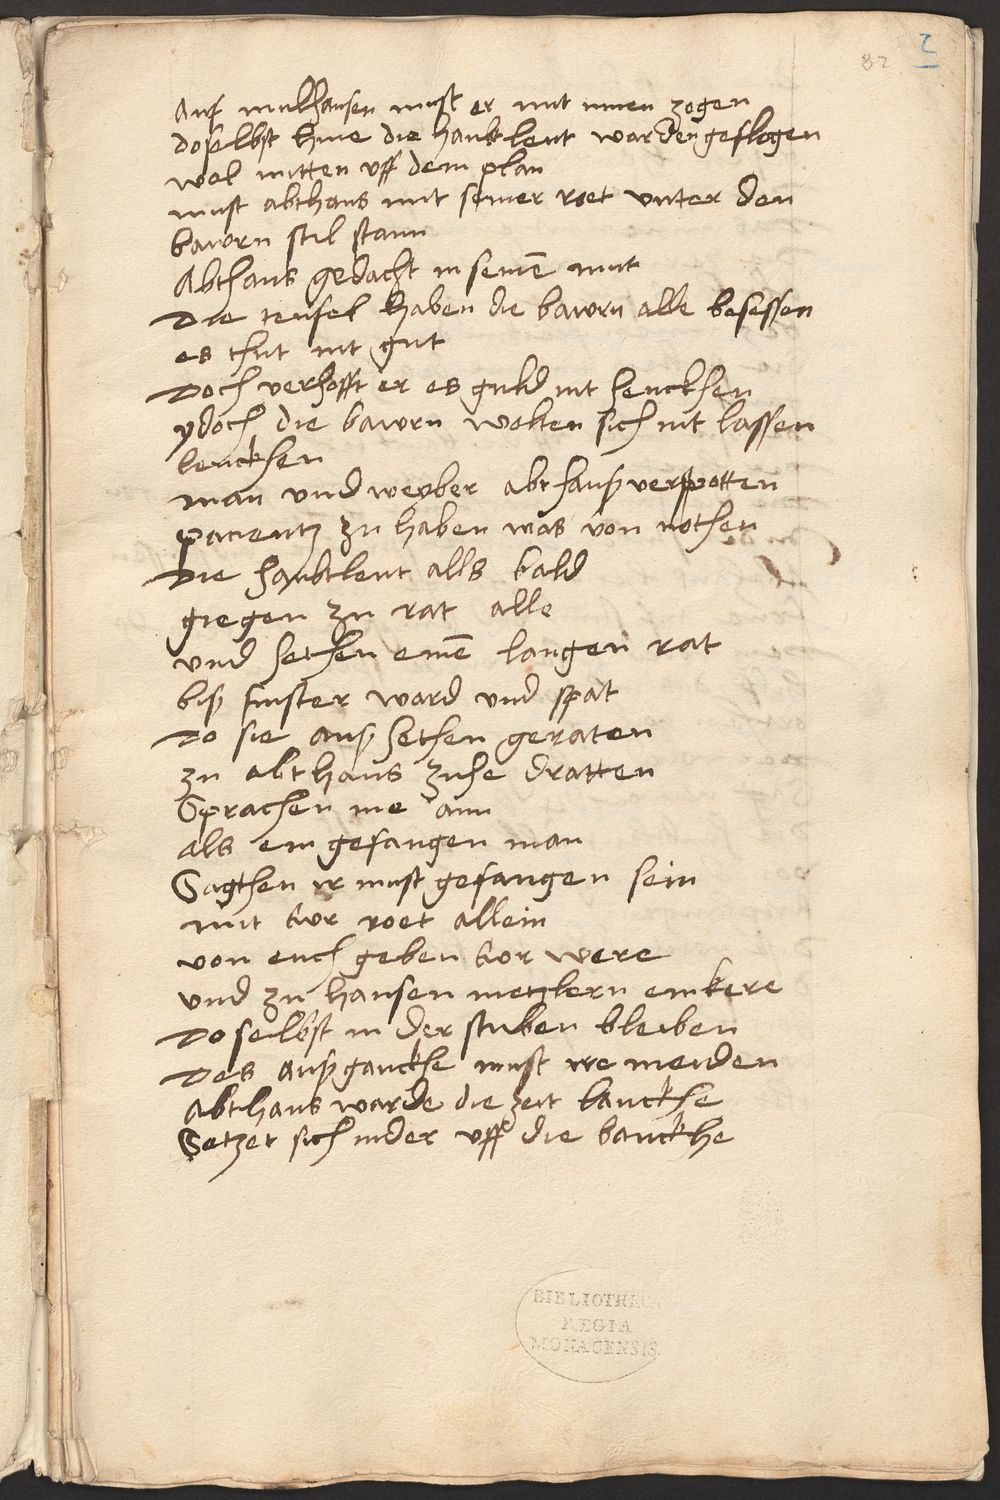 82 2
Auf mulhausen must er mit innen zogen
doselbst hine die haubtleut warden geflogen
wol mitten uff dem plan
must abthans mit seiner roet unter den
bawrn stil stann
Abthans gedacht in seinē mut
Die teufel haben die bawrn alle besessen
es thut nit gut
Doch verhofft er es guld nit henckhen
ydoch die bawrn wolten sich nit lassen
lenckhen
man und weyber abthanß verspotten
pacientz zu haben was von nothen
Die haubtleut alls bald
giegen zu rat alle
und hethen einē langen rat
biß finster ward und spat
Do sie auß hethen geraten
zu abthans zuhe dratten
Sprachen ine ann
als ein gefangen man
Sagthen ir must gefangen sein
mit eur roet allein
von euch geben eor were
und zu hansen metzlern einkere
Doselbst in der stuben bleiben
Des außganckhe must ire meiden
Abthans warde die zeit lanckhe
Setzet sich nider uff die banckhe
BIBLIOTHECA
REGIA
MONACENSIS.